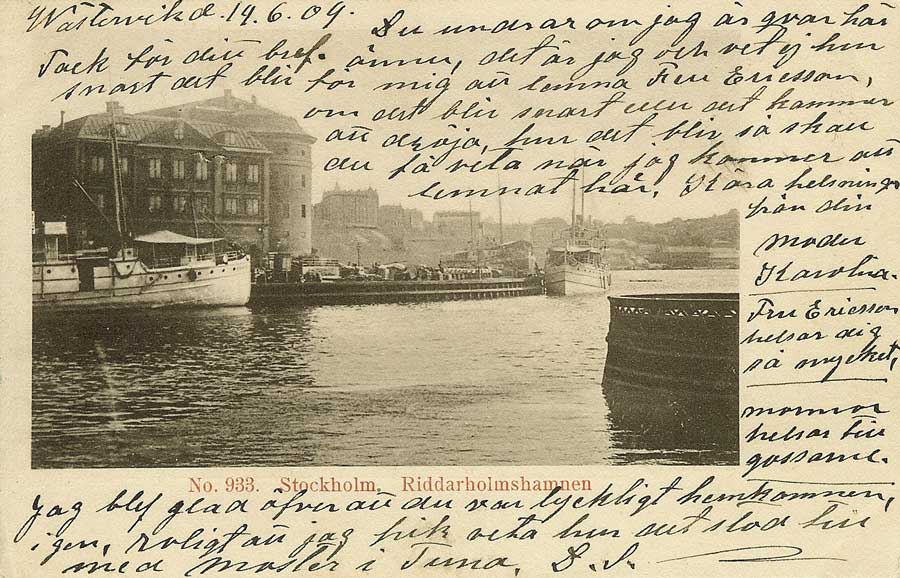 Westervik d. 14.6.09.
Tack för ditt bref. Du undrar om jag är qvar här
ännu, det är jag och vet ej hur
snart det blir för mig att lemna Fru Ericsson,
om det blir snart eller det kommer
att dröja, hur det blir så skall
du få veta när jag kommer att
lemnat här. Kära helsningar
från din
moder
Karolina.
Fru Ericsson
helsar dig
så mycket,
mormor
helsar till
gossarne.
No. 933. Stockholm, Riddarholmshamnen
Jag blef glad öfver att du var lyckligt hemkommen,
igen, roligt att jag fick veta hur det stod till
med Moster i Tuna. D. S.